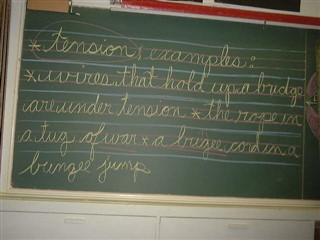 * tension; examples:
* wires that hold up a bridge
are under tension * the rope in
a tug of war * a bungee cord in a
bungee jump